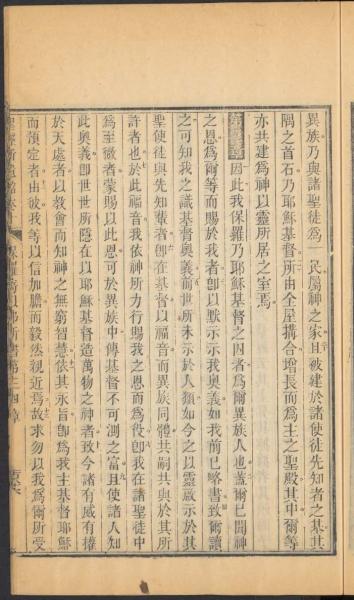 異族乃與諸聖徒爲一民屬神之家且被建於諸使徒先知者之基其
隅之首石乃耶穌基督所由全屋搆合增長而爲主之聖殿其中爾等
亦共建爲神以靈所居之室焉
因此我保羅乃耶穌基督之囚者爲爾異族人也蓋爾已聞神
之恩爲爾等而賜於我者卽以默示示我奧義如我前已略書致爾讀
之可知我之識基督奧義前世所未示於人類如今之以靈啟示於其
聖使徒與先知輩者卽在基督以福音而異族同體共嗣共與於其所
許者也於此福音我依神所力行賜我之恩而爲役卽我在諸聖徒中
爲至微者蒙賜以此恩可於異族中傳基督不可測之富且使諸人知
此奧義卽世世所隱在以耶穌基督造萬物之神者致今諸有威有權
於天處者以教會而知神之無窮智慧依其永旨卽爲我主基督耶穌
而預定者由彼我等以信加膽而毅然親近焉故求勿以我爲爾所受